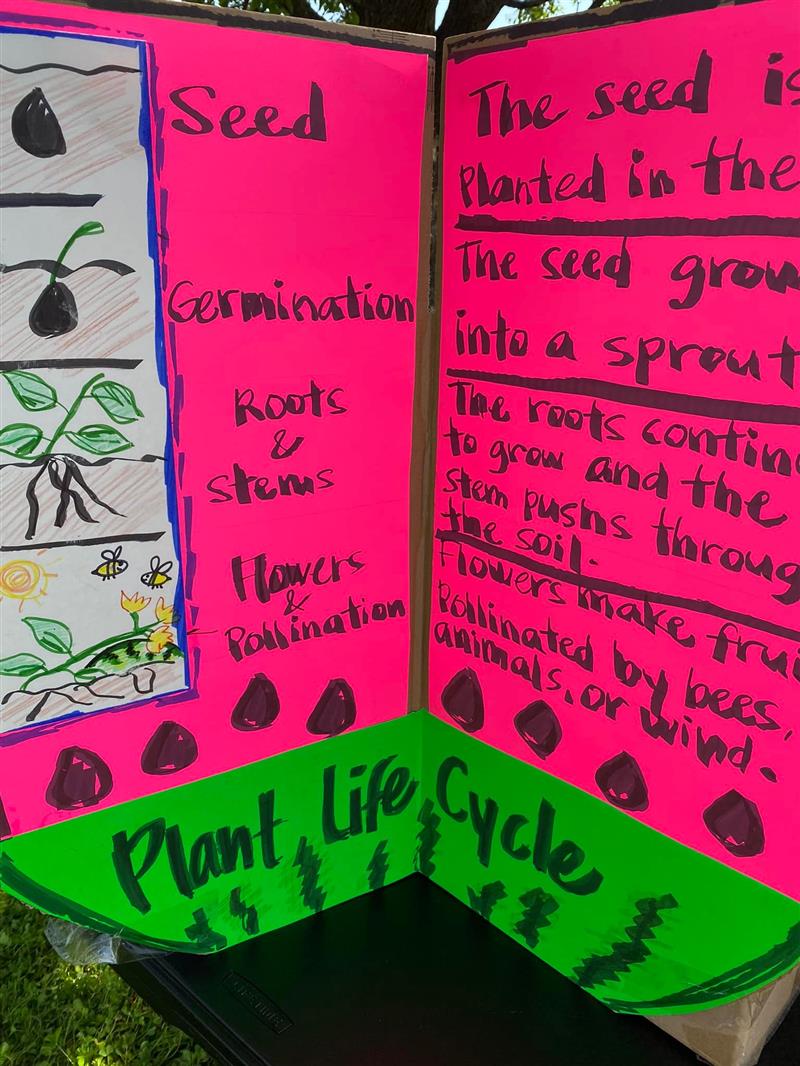 Seed
Germination
Roots
&
Stems
Flowers
&
Pollination
The seed is
Planted in the
The seed grow
into a sprout
The roots contin
to grow and the
stem pushs throug
the soil.
Flowers make frui
Pollinated by bees,
animals, or wind.
Plant Life Cycle